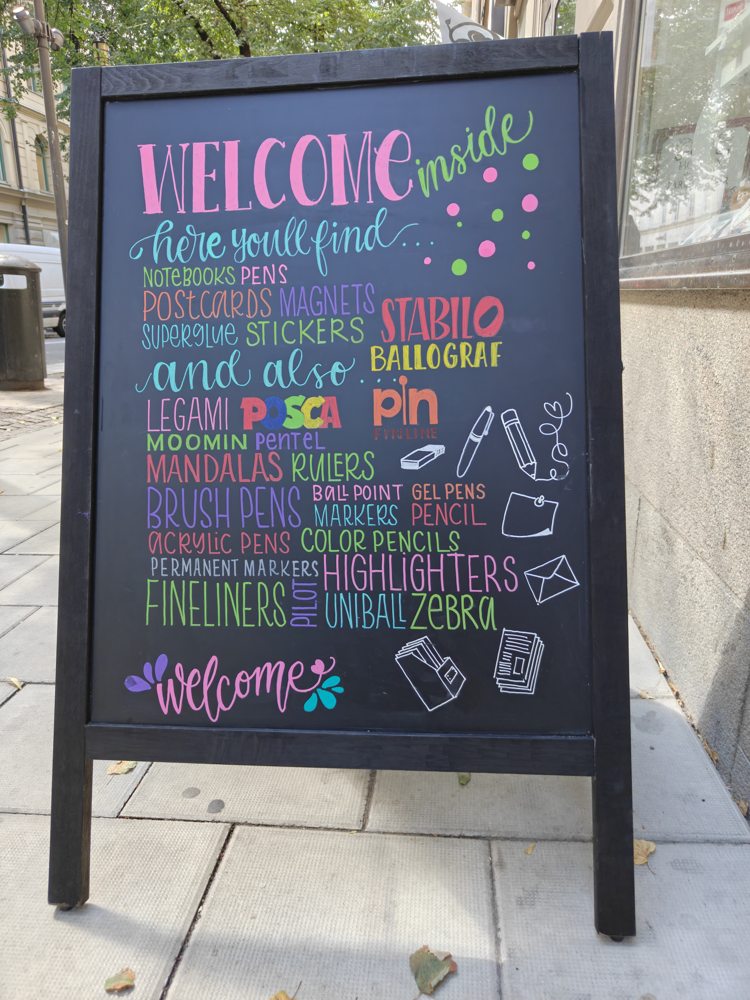 WELCOME inside
here you'll find...
NOTEBOOKS PENS
POSTCARDS MAGNETS
SUPERGLUE STICKERS STABILO
BALLOGRAF
and also...
LEGAMI POSCA pin
FINELINE
MOOMIN Pentel
MANDALAS RULERS
BRUSH PENS BALLPOINT GEL PENS
MARKERS PENCIL
ACRYLIC PENS COLOR PENCILS
PERMANENT MARKERS HIGHLIGHTERS
FINELINERS PILOT UNIBALL ZEBRA
welcome